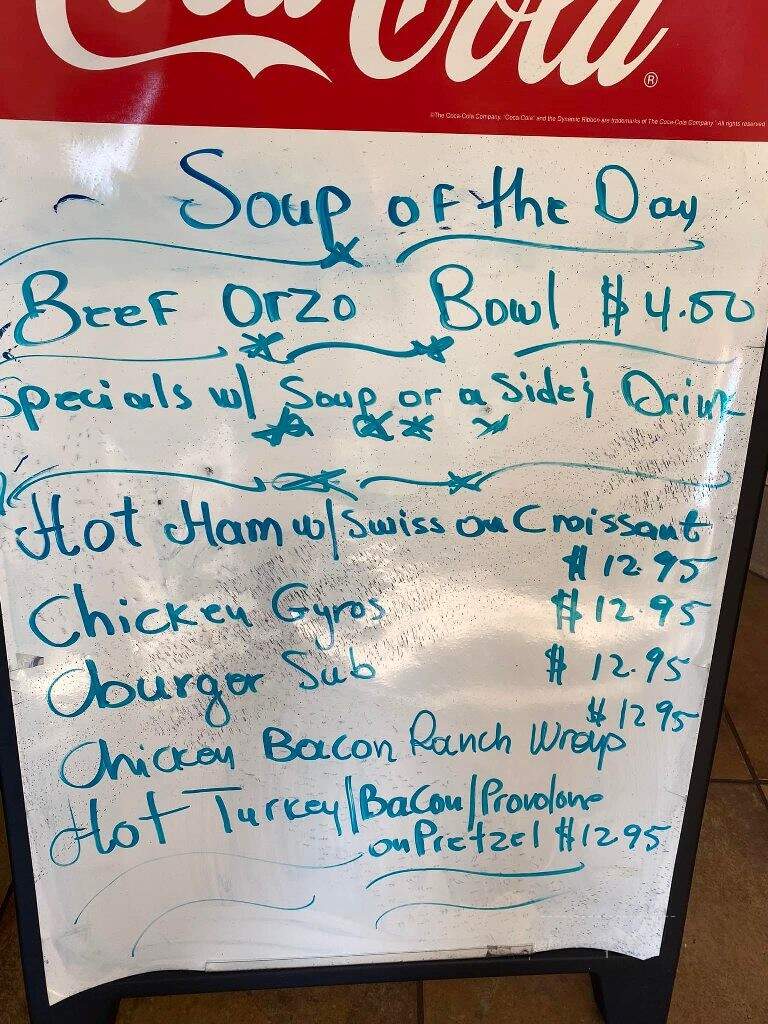 Coca-Cola ®
©The Coca-Cola Company. "Coca-Cola" and the Dynamic Ribbon are trademarks of The Coca-Cola Company. All rights reserved
Soup of the Day
Beef Orzo Bowl $4.50
Specials w/ Soup or a Side & Drink
Hot Ham w/ Swiss on Croissant
$12.95
Chicken Gyros $12.95
Cburger Sub $12.95
$12.95
Chicken Bacon Ranch Wrap
Hot Turkey/Bacon/Provolone
on Pretzel $12.95